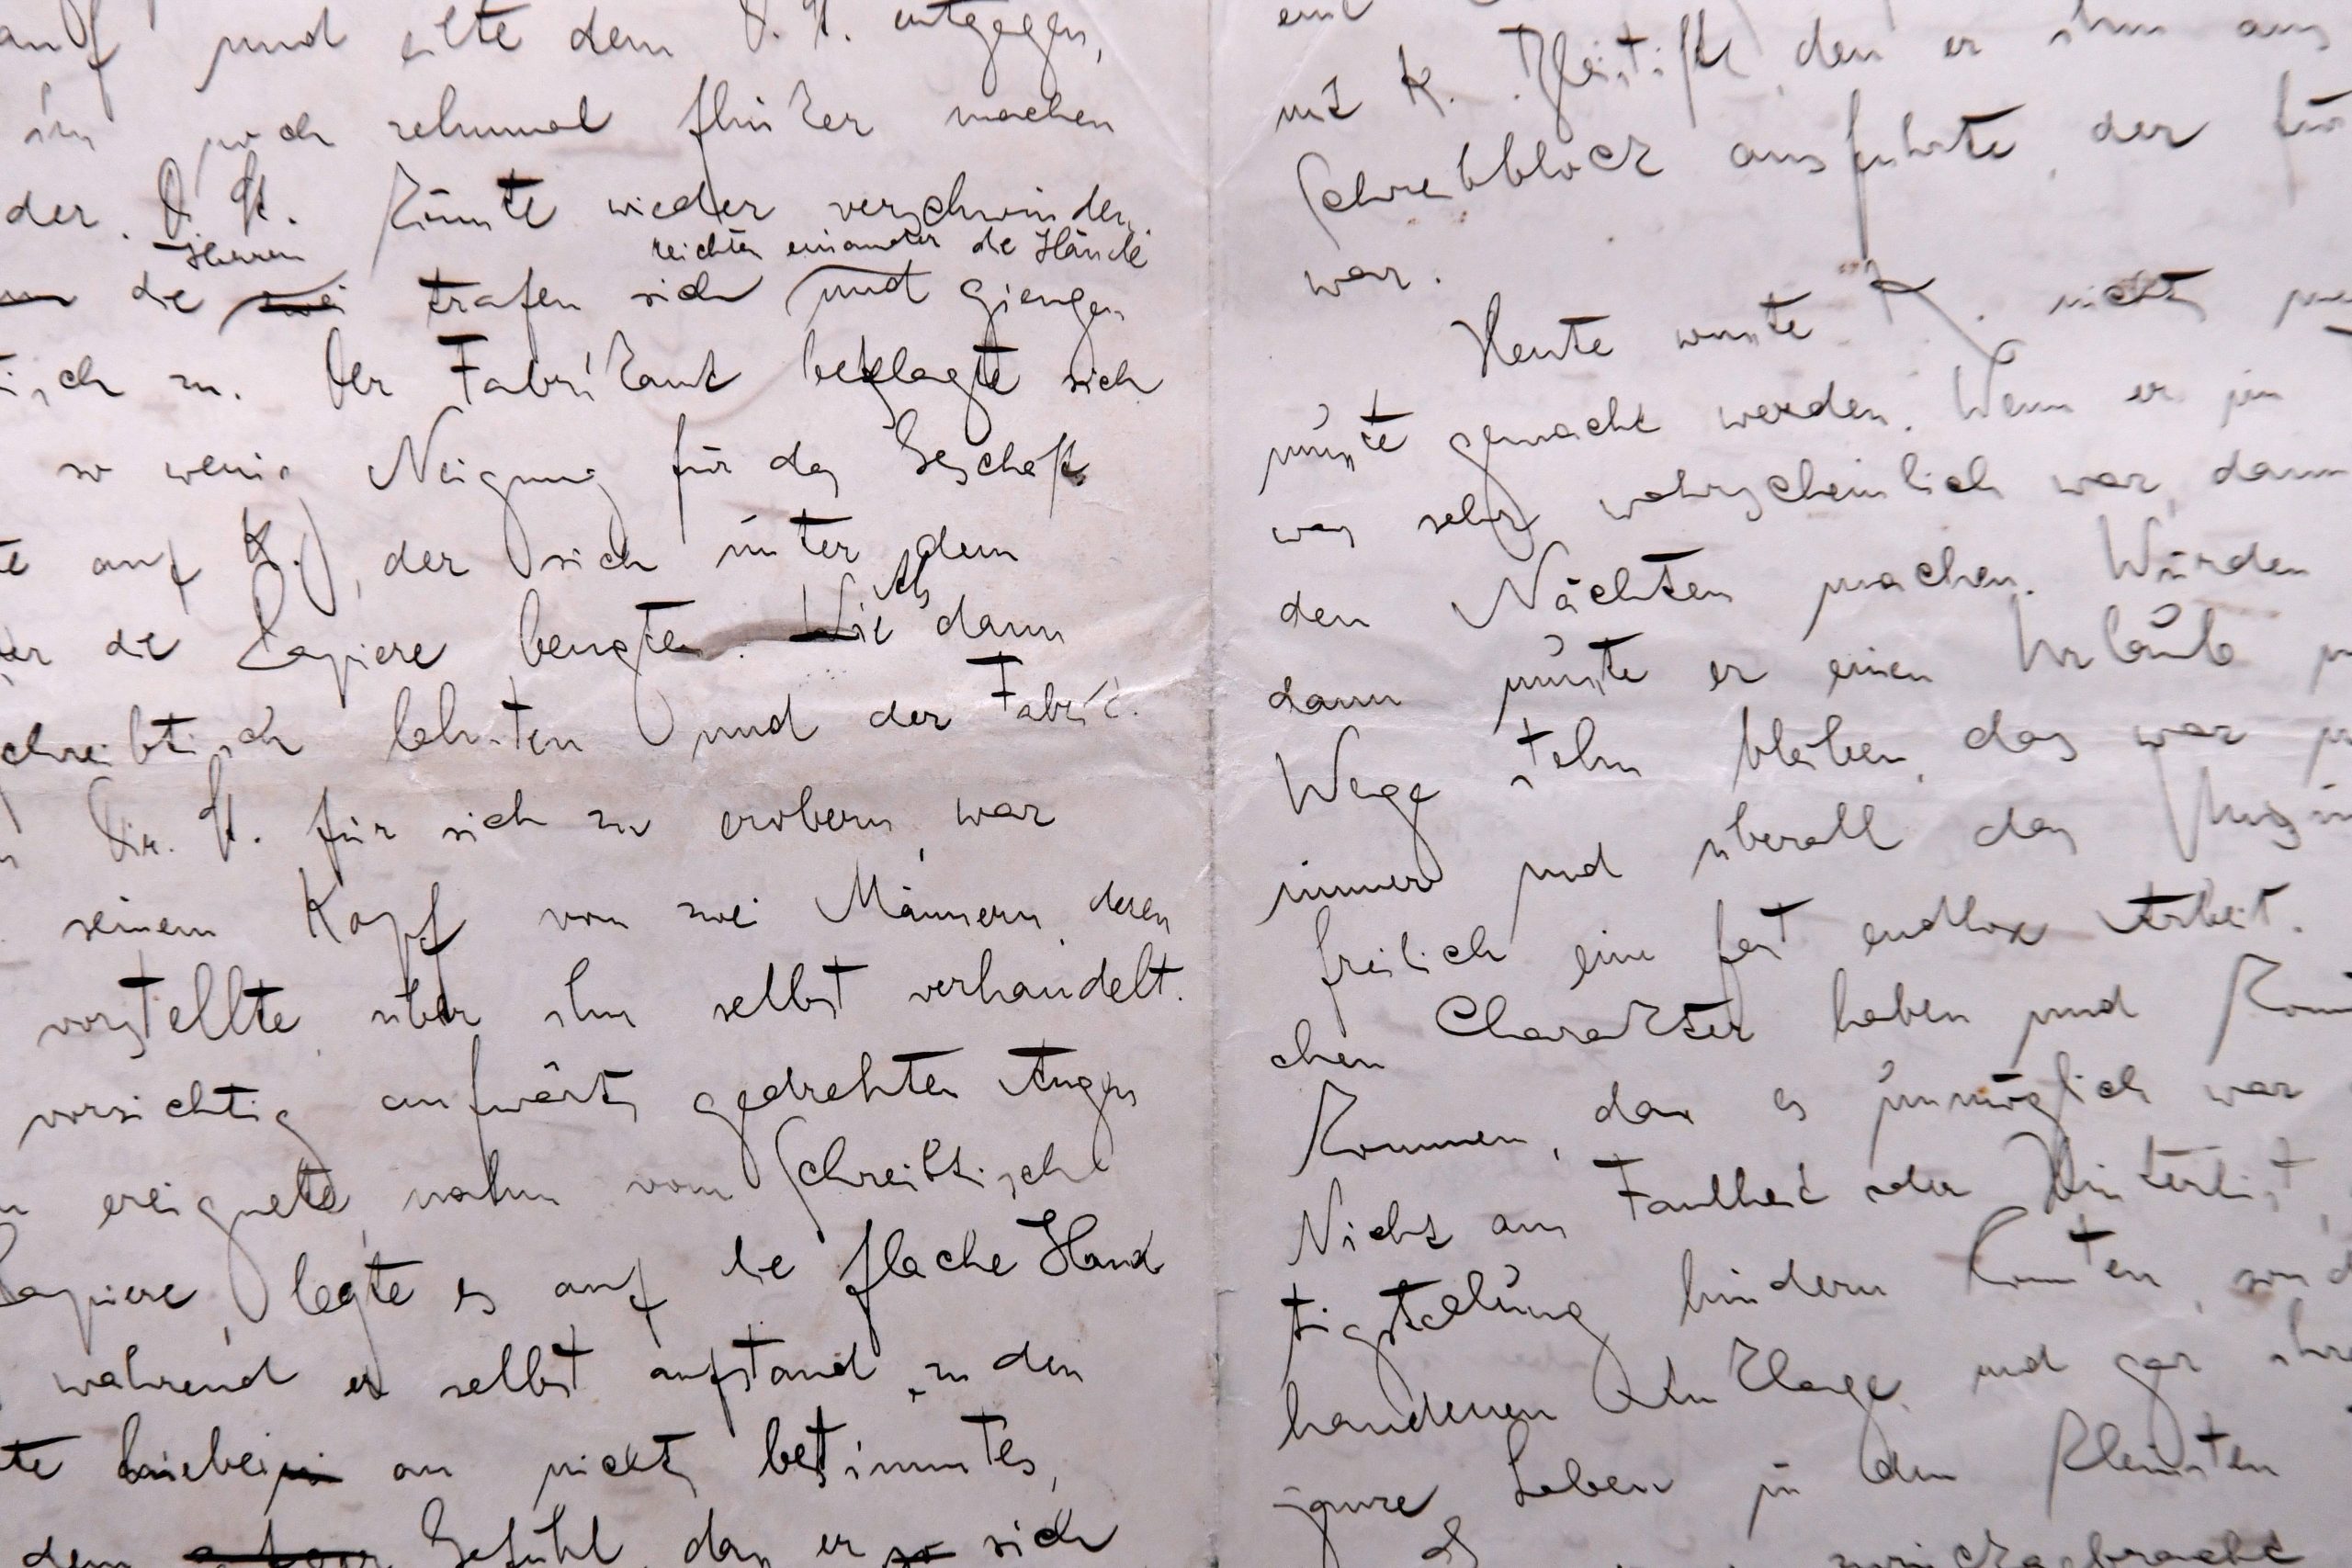 auf und eilte dem D. St. entgegen,
ihn noch zehnmal stärker machen
der D. St. könnte wieder verschwinden,
Herren reichten einander die Hände
die zwei trafen sich und giengen
isch zu. Der Fabrikant beklagte sich
so wenig Neigung für das Geschäft
te auf K., der sich unter dem
Als
er die Papiere beugte. Wie dann
chreibtisch lehnten und der Fabri.
Dir. St. für sich zu erobern, war
seinem Kopf von zwei Männern, deren
vorstellte, über ihn selbst verhandelt.
vorsichtig aufwärts gedrehten Augen
ereignete, nahm vom Schreibtisch
Papiere, legte es auf die flache Hand
während er selbst aufstand, zu den
te hiebei an nichts bestimmtes,
dem Gefühl, dass er so sich
mit K. Bleistift, den er ihm aus
Schreibblock ausführte, der für
war.
Heute wusste K. nichts
müsste gemacht werden. Wenn er in
was sehr wahrscheinlich war, dann
den Nächten machen. Würden
dann müsste er einen Urlaub
Wege stehn bleiben, das war
immer und überall das
freilich eine fast endlose Arbeit.
chen Charakter haben und
kommen, dass es unmöglich war
Nicht aus Faulheit oder Hinterlist
tigstellung hindern konnten, son
handenen Anklage und gar ihre
ganze Leben in den kleinsten
zurückgebracht